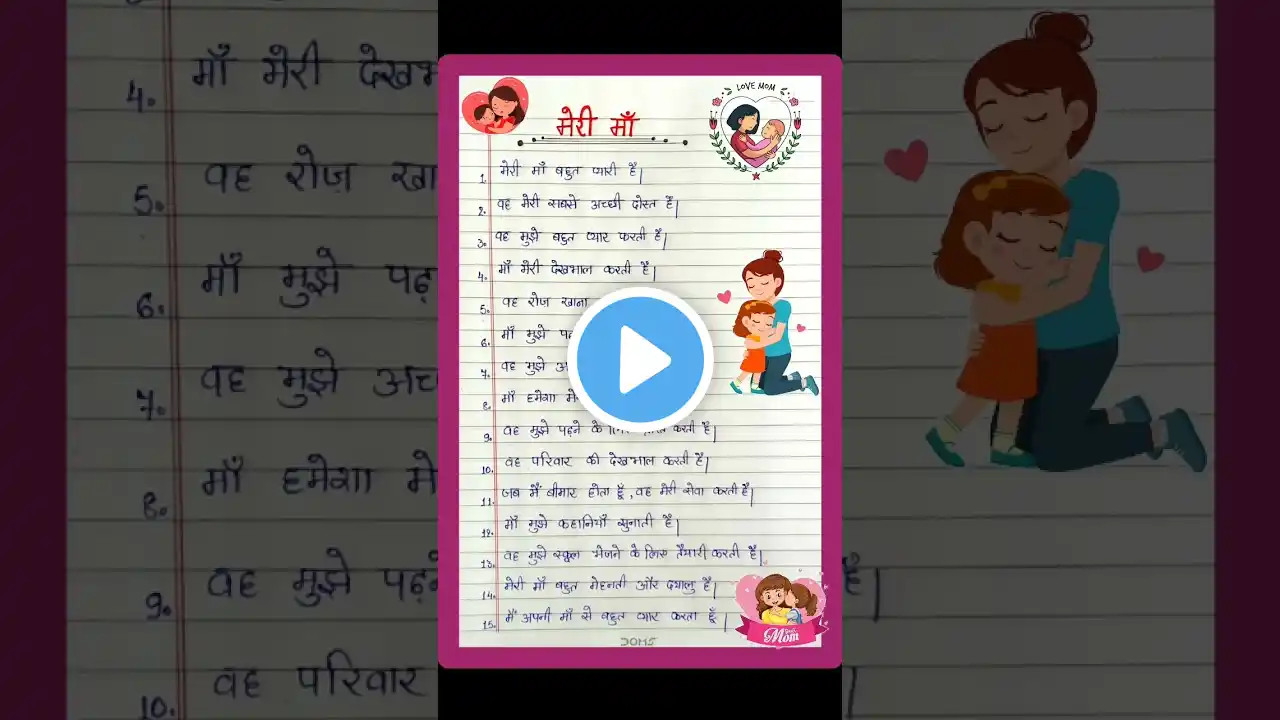 LOVE MOM
मेरी माँ
1. मेरी माँ बहुत प्यारी है|
2. वह मेरी सबसे अच्छी दोस्त है|
3. वह मुझे बहुत प्यार करती है|
4. माँ मेरी देखभाल करती है|
5. वह रोज़ खाना
6. माँ मुझे
7. वह मुझे
8. माँ हमेशा
9. वह मुझे पढ़ने के करती है|
10. वह परिवार की देखभाल करती है|
11. जब मैं बीमार होता हूँ, वह मेरी सेवा करती है|
12. माँ मुझे कहानियाँ सुनाती है|
13. वह मुझे स्कूल भेजने के लिए तैयारी करती है|
14. मेरी माँ बहुत मेहनती और दयालु है|
15. मैं अपनी माँ से बहुत प्यार करता हूँ|
Mom
DOMS
4. माँ मेरी
5. वह रोज़
6. माँ मुझे
7. वह मुझे
8. माँ हमेशा
9. वह मुझे है|
10. वह परिवार